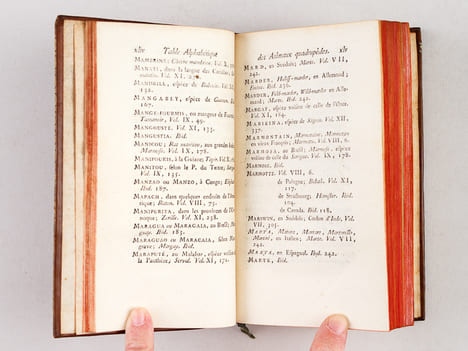 xliv Table Alphabétique
MAMBRINE; Chèvre mambrine. Vol. X,
MANATI, dans la langue des Caraïbes,
Vol. XI,
MANDRILL, espèce de Babouin.
MANGABEY, espèce de Guenon.
167.
MANGE-FOURMIS, ou mangeur de
Tamanoir, Vol. IX, 49.
MANGOUSTE. Vol. XI, 135.
MANGOUSTIA. Ibid.
MANICOU; Rat manitou, aux grandes
Marmose, Vol. IX, 178.
MANIPOURIS, à la Guiane; Tapir. Vol.
MANITOU, selon le P. du Tertre;
Vol. IX, 135.
MANZAO ou MANZO, à Congo;
Ibid. 187.
MAPACH, dans quelques endroits de l'Am-
érique; Raton. Vol. VIII, 75.
MANIPURITA, dans les provinces de
noque; Zorille. Vol. XI, 238.
MARAGUA ou MARACAIA, au Brésil;
guay. Ibid. 183.
MARAGUAO ou MARACAIA, selon
grave; Margay. Ibid.
MARAPUTÉ, au Malabar, espèce
la Panthère; Serval. Vol. XI, 171.
des Animaux quadrupèdes. xlv
MARD, en Suédois; Marte. Vol. VII,
242.
MARDER, en Allemand;
Fouine. Ibid. 236.
MARDER, Feld-marder, Wild-marder en Alle-
mand; Marte. Ibid. 242.
MARGAY, espèce voisine de celle de l'Once.
Vol. XI, 184.
MARIKINA, espèce de Sagoin. Vol. XII,
277.
MARMONTAIN, Marmotaine; Marmotan
en vieux François; Marmotte. Vol. VIII, 6.
MARMOSA, au Brésil; Marmose, espèce
voisine de celle du Sarigue. Vol. IX, 178.
MARMOSE. Ibid.
MARMOTTE. Vol. VIII, 6.
de Pologne; Bobak. Vol. XI,
217.
de Strasbourg; Hamster. Ibid.
104.
de Canada. Ibid. 118.
MARSWIN, en Suédois; Cochon d'Inde. Vol.
VII, 305.
MARTA, Martore, Martora, Martorello,
en Italien; Marte. Vol. VII,
242.
MARTA, en Espagnol. Ibid. 242.
MARTE. Ibid.